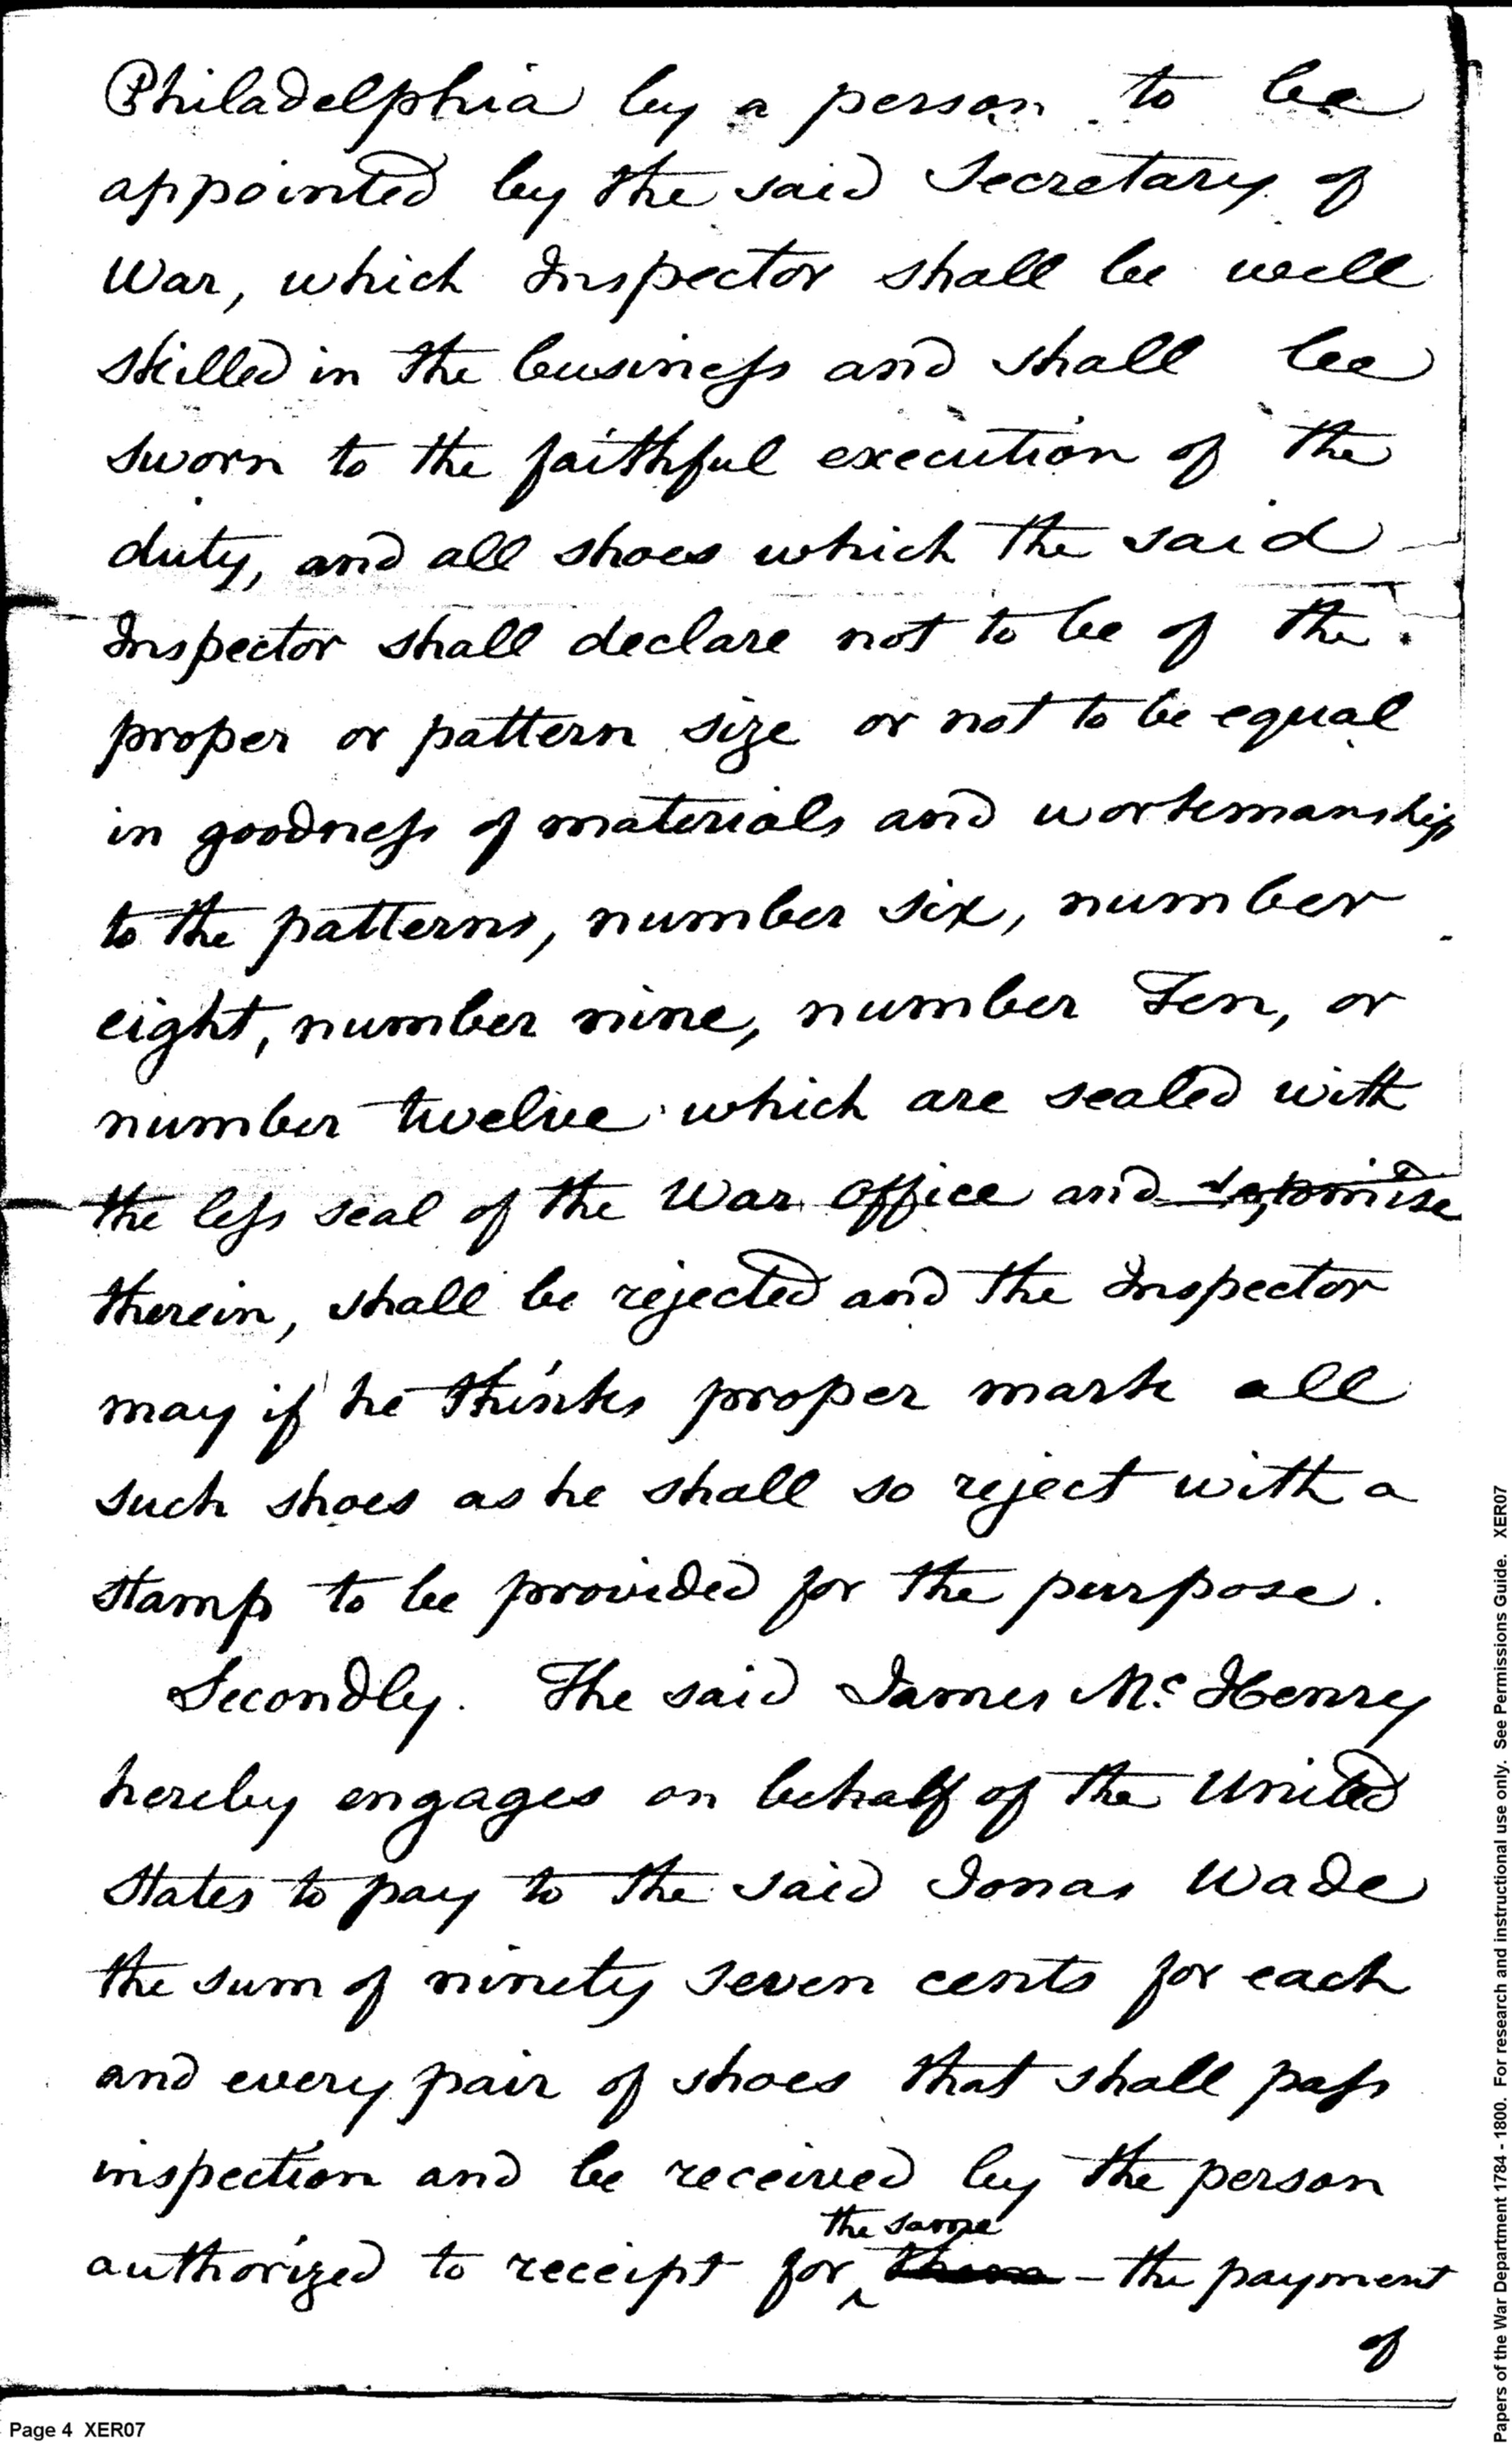 Philadelphia by a person to be
appointed by the said Secretary of
War, which Inspector shall be well
skilled in the business and shall be
sworn to the faithful execution of the
duty, and all shoes which the said
Inspector shall declare not to be of the
proper or pattern size or not to be equal
in goodness of materials and workmanship
to the patterns, number six, number
eight, number nine, number Ten, or
number twelve which are sealed with
the less seal of the War office and
therein, shall be rejected and the Inspector
may if he thinks proper mark all
such shoes as he shall so reject with a
stamp to be provided for the purpose.
Secondly. The said James McHenry
hereby engages on behalf of the United
States to pay to the said Jonas Wade
the sum of ninety seven cents for each
and every pair of shoes that shall pass
inspection and be received by the person
the same
authorized to receipt for them - the payment
of
Page 4 XER07
Papers of the War Department 1784 - 1800. For research and instructional use only. See Permissions Guide. XER07